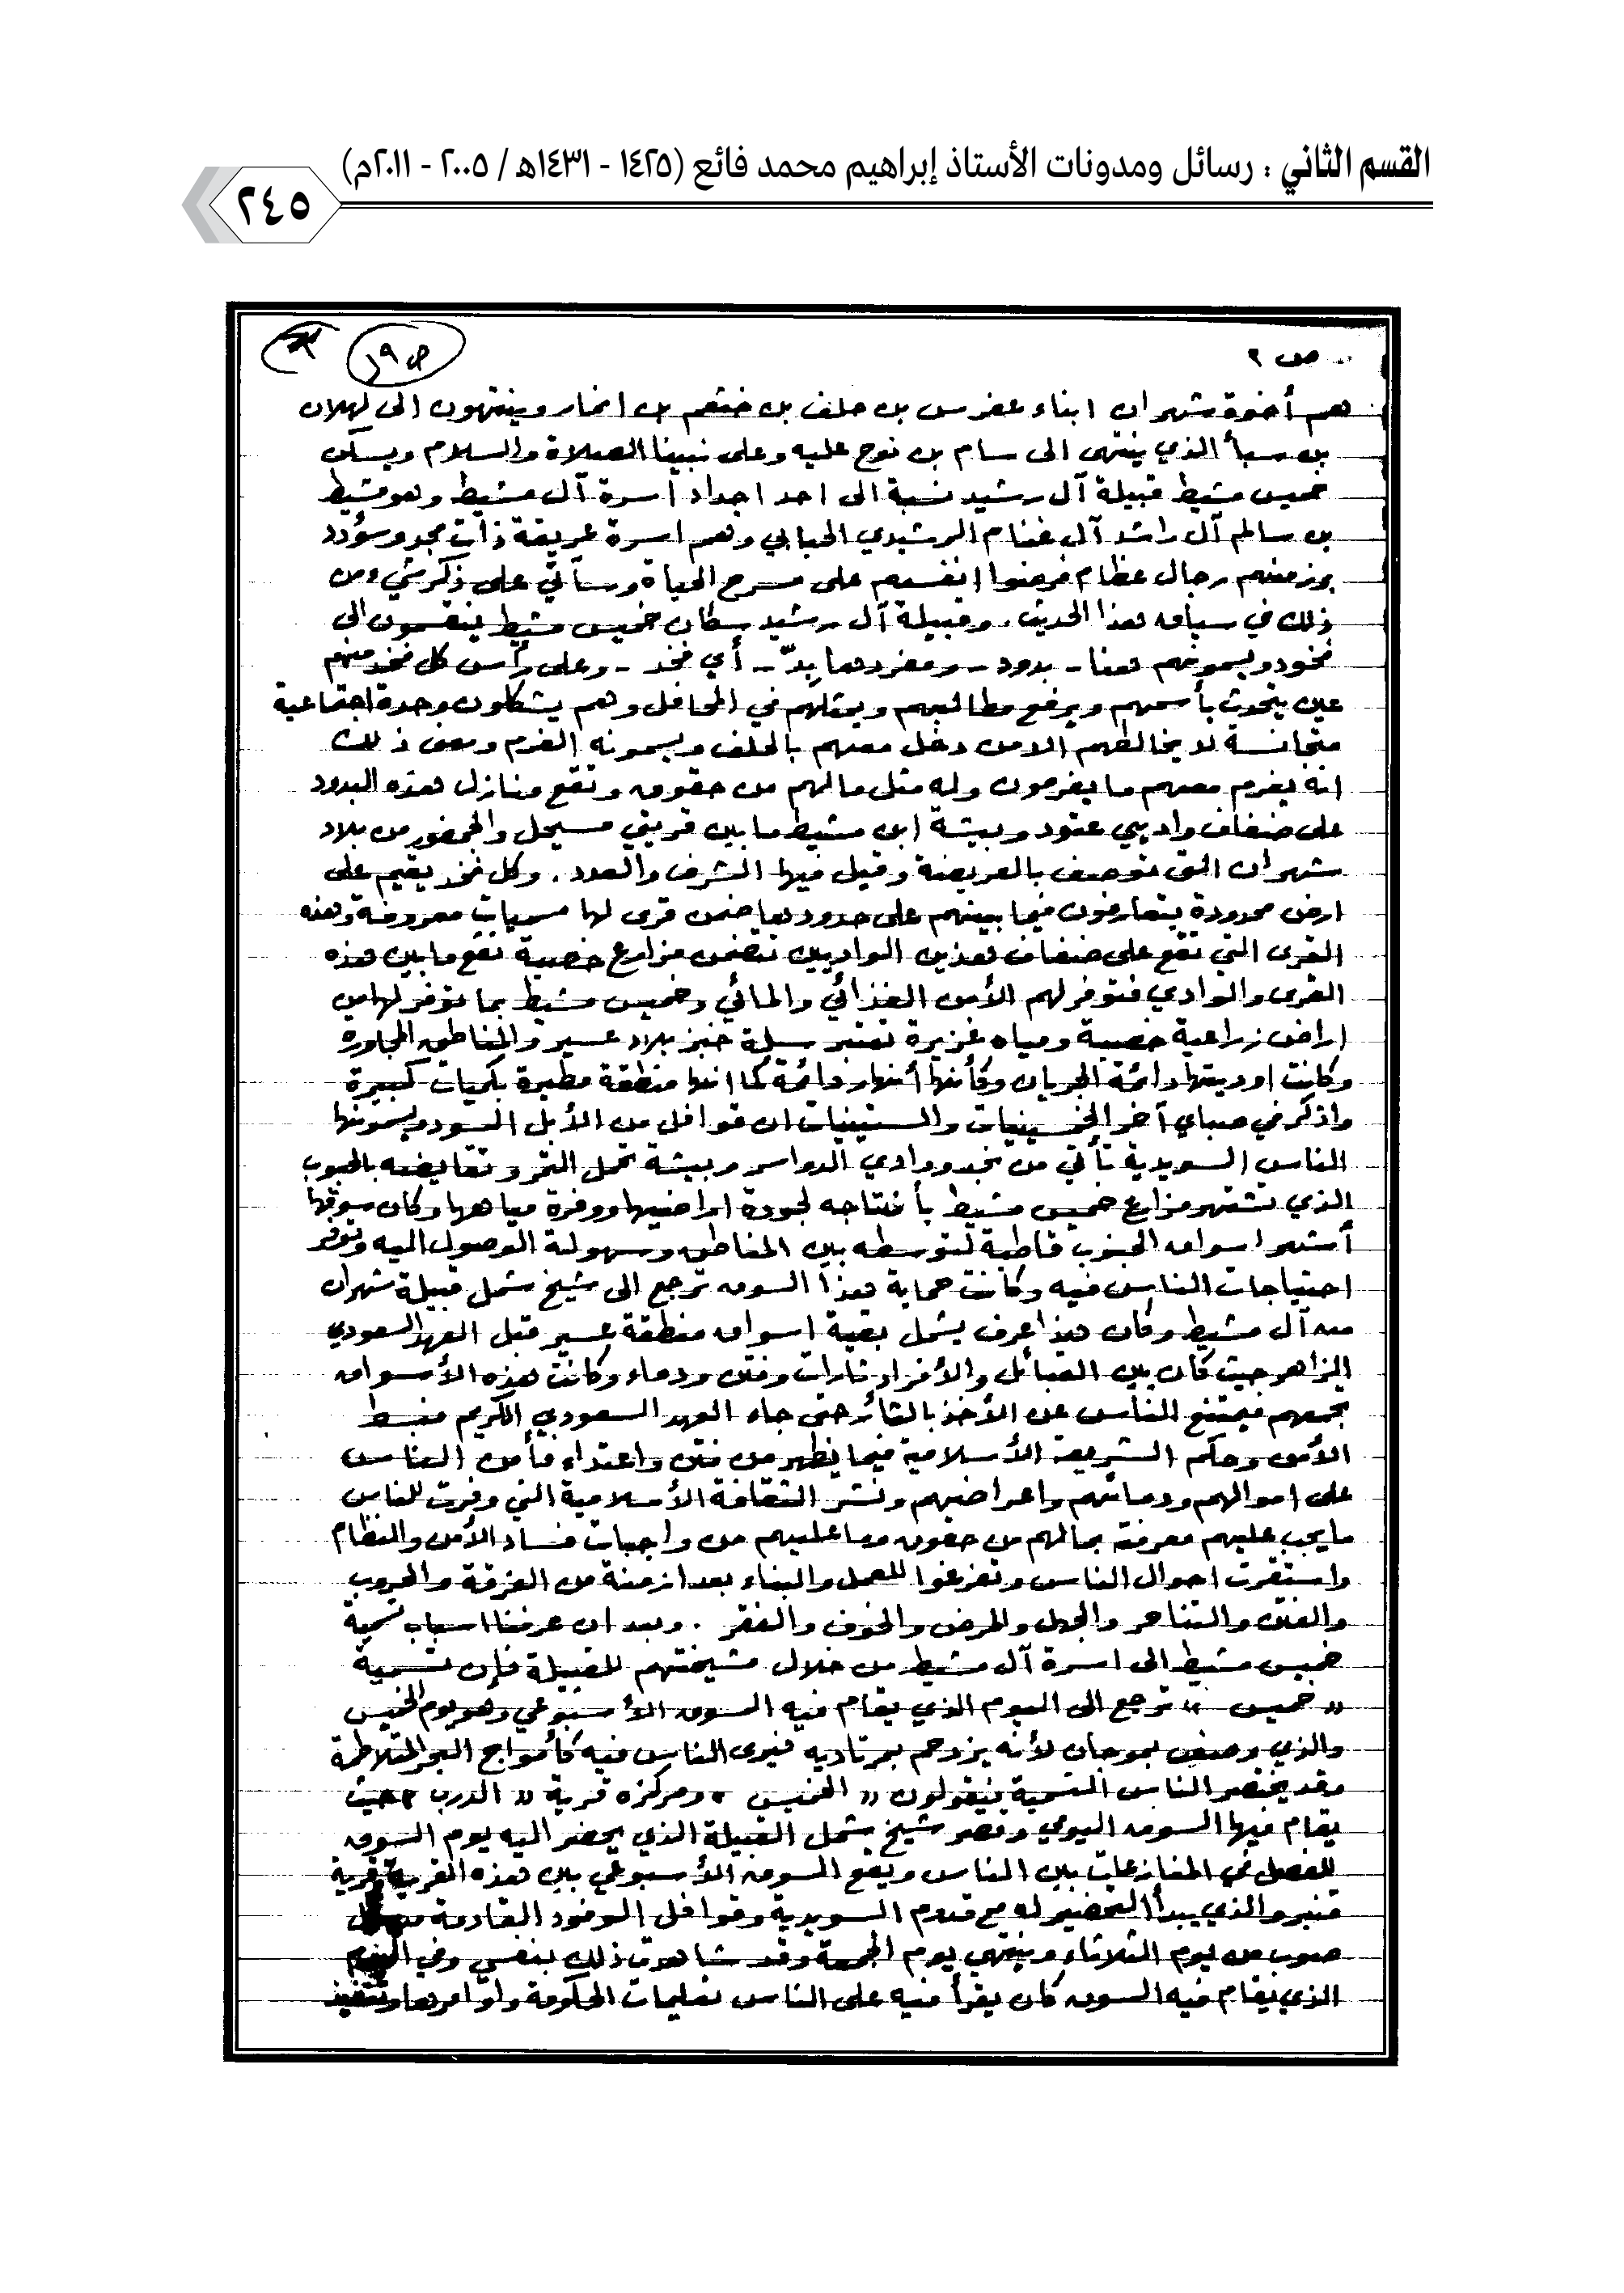 القسم الثاني : رسائل ومدونات الأستاذ إبراهيم محمد فائع (١٤٢٥ - ١٤٣١هـ / ٢٠٠٥ - ٢٠١١م)
٢٤٥
ص ٢
هم أخوة شهران ابناء عفرس بن حلف بن خثعم بن انمار وينتهون الى كهلان
بن سبأ الذي ينتهى الى سام بن نوح عليه وعلى نبينا الصلاة والسلام ويسكن
خميس مشيط قبيلة آل رشيد نسبة الى احد اجداد اسرة آل مشيط وهو مشيط
بن سالم آل راشد آل غنام الرشيدي الحبابي وهم اسرة عريقة ذات مجد وسؤدد
برز منهم رجال عظام فرضوا انفسهم على مسرح الحياة وسآتي على ذكر شيء من
ذلك في سياق هذا الحديث . وقبيلة آل رشيد سكان خميس مشيط ينقسمون الى
فخود ويسمونهم هنا - بدود - ومفردها بِدّ - أي فخذ - وعلى رأس كل فخذ منهم
عين يتحدث بأسمهم ويرفع مطالبهم ويمثلهم في المحافل وهم يشكلون وحدة اجتماعية
متجانسة لا يخالطهم الا من دخل معهم بالحلف ويسمونه الغرم ومعنى ذلك
انه يغرم معهم ما يغرمون وله مثل مالهم من حقوق وتقع منازل هذه البدود
على ضفاف واديي عتود وبيشة ابن مشيط ما بين قريتي مسيحل والمحضور من بلاد
شهران التى توصف بالعريضة وقيل فيها الشرف والعدد . وكل فخد يقيم على
ارض محدودة يتعارفون فيما بينهم على حدودها ضمن قرى لها مسميات معروفة وهذه
القرى التي تقع على ضفاف هذين الواديين تتضمن مزارع خصبة تقع ما بين هذه
القرى والوادي فتوفر لهم الأمن الغذائي والمائي وخميس مشيط بما توفر لها من
اراض زراعية خصبة ومياه غزيرة تعتبر سلة خبز بلاد عسير والمناطق المجاوره
وكانت اوديتها دائمة الجريان وكأنها أنهار دائمة كما انها منطقة مطيرة بكميات كبيرة
واذكر في صباي آخر الخمسينيات والستينيات ان قوافل من الأبل السود ويسمونها
الناس السويدية تأتي من نجد ووادي الدواسر وبيشة تحمل التمر وتقايضه بالحبوب
الذي تشتهر مزارع خميس مشيط بأنتاجه لجودة اراضيها ووفرة مياهها وكان سوقها
أشهر اسواق الجنوب قاطبة لتوسطه بين المناطق وسهولة الوصول اليه وتوفر
احتياجات الناس فيه وكانت حماية هذا السوق ترجع الى شيخ شمل قبيلة شهران
من آل مشيط وكان هذا عرف يشمل بقية اسواق منطقة عسير قبل العهد السعودي
الزاهر حيث كان بين القبائل والأفراد ثارات وفتن ودماء وكانت هذه الأسواق
تجمعهم فيمتنع الناس عن الأخذ بالثأر حتى جاء العهد السعودي الكريم فبسط
الأمن وحكم الشريعة الأسلامية فيما يظهر من فتن واعتداء فأمن الناس
على اموالهم ودمائهم واعراضهم ونشر الثقافة الأسلامية التي وفرت للناس
ما يجب عليهم معرفته بمالهم من حقوق وما عليهم من واجبات فساد الأمن والنظام
واستقرت احوال الناس وتفرغوا للعمل والبناء بعد ازمنة من الفرقة والحروب
والفتن والتناحر والجهل والمرض والخوف والفقر . وبعد ان عرفنا اسباب تسمية
خميس مشيط الى اسرة آل مشيط من خلال مشيختهم للقبيلة فإن تسمية
« خميس » ترجع الى اليوم الذي يقام فيه السوق الأسبوعي وهو يوم الخميس
والذي وصف بموجان لأنه يزدحم بمرتاديه فيرى الناس فيه كأمواج البحر المتلاطمة
وقد يختصر الناس التسمية فيقولون « الخميس » ومركزه قرية « الدرب » حيث
يقام فيها السوق اليومي وقصر شيخ شمل القبيلة الذي يحضر اليه يوم السوق
للفصل في المنازعات بين الناس ويقع السوق الأسبوعي بين هذه القرية وقرية
قنبر والذي يبدأ التحضير له مع قدوم السويدية وقوافل الوفود القادمة من كل
صوب من يوم الثلاثاء وينتهي يوم الجمعة وقد شاهدت ذلك بنفسي وفي اليوم
الذي يقام فيه السوق كان يقرأ فيه على الناس تعليمات الحكومة واوامرها وتنفيذ